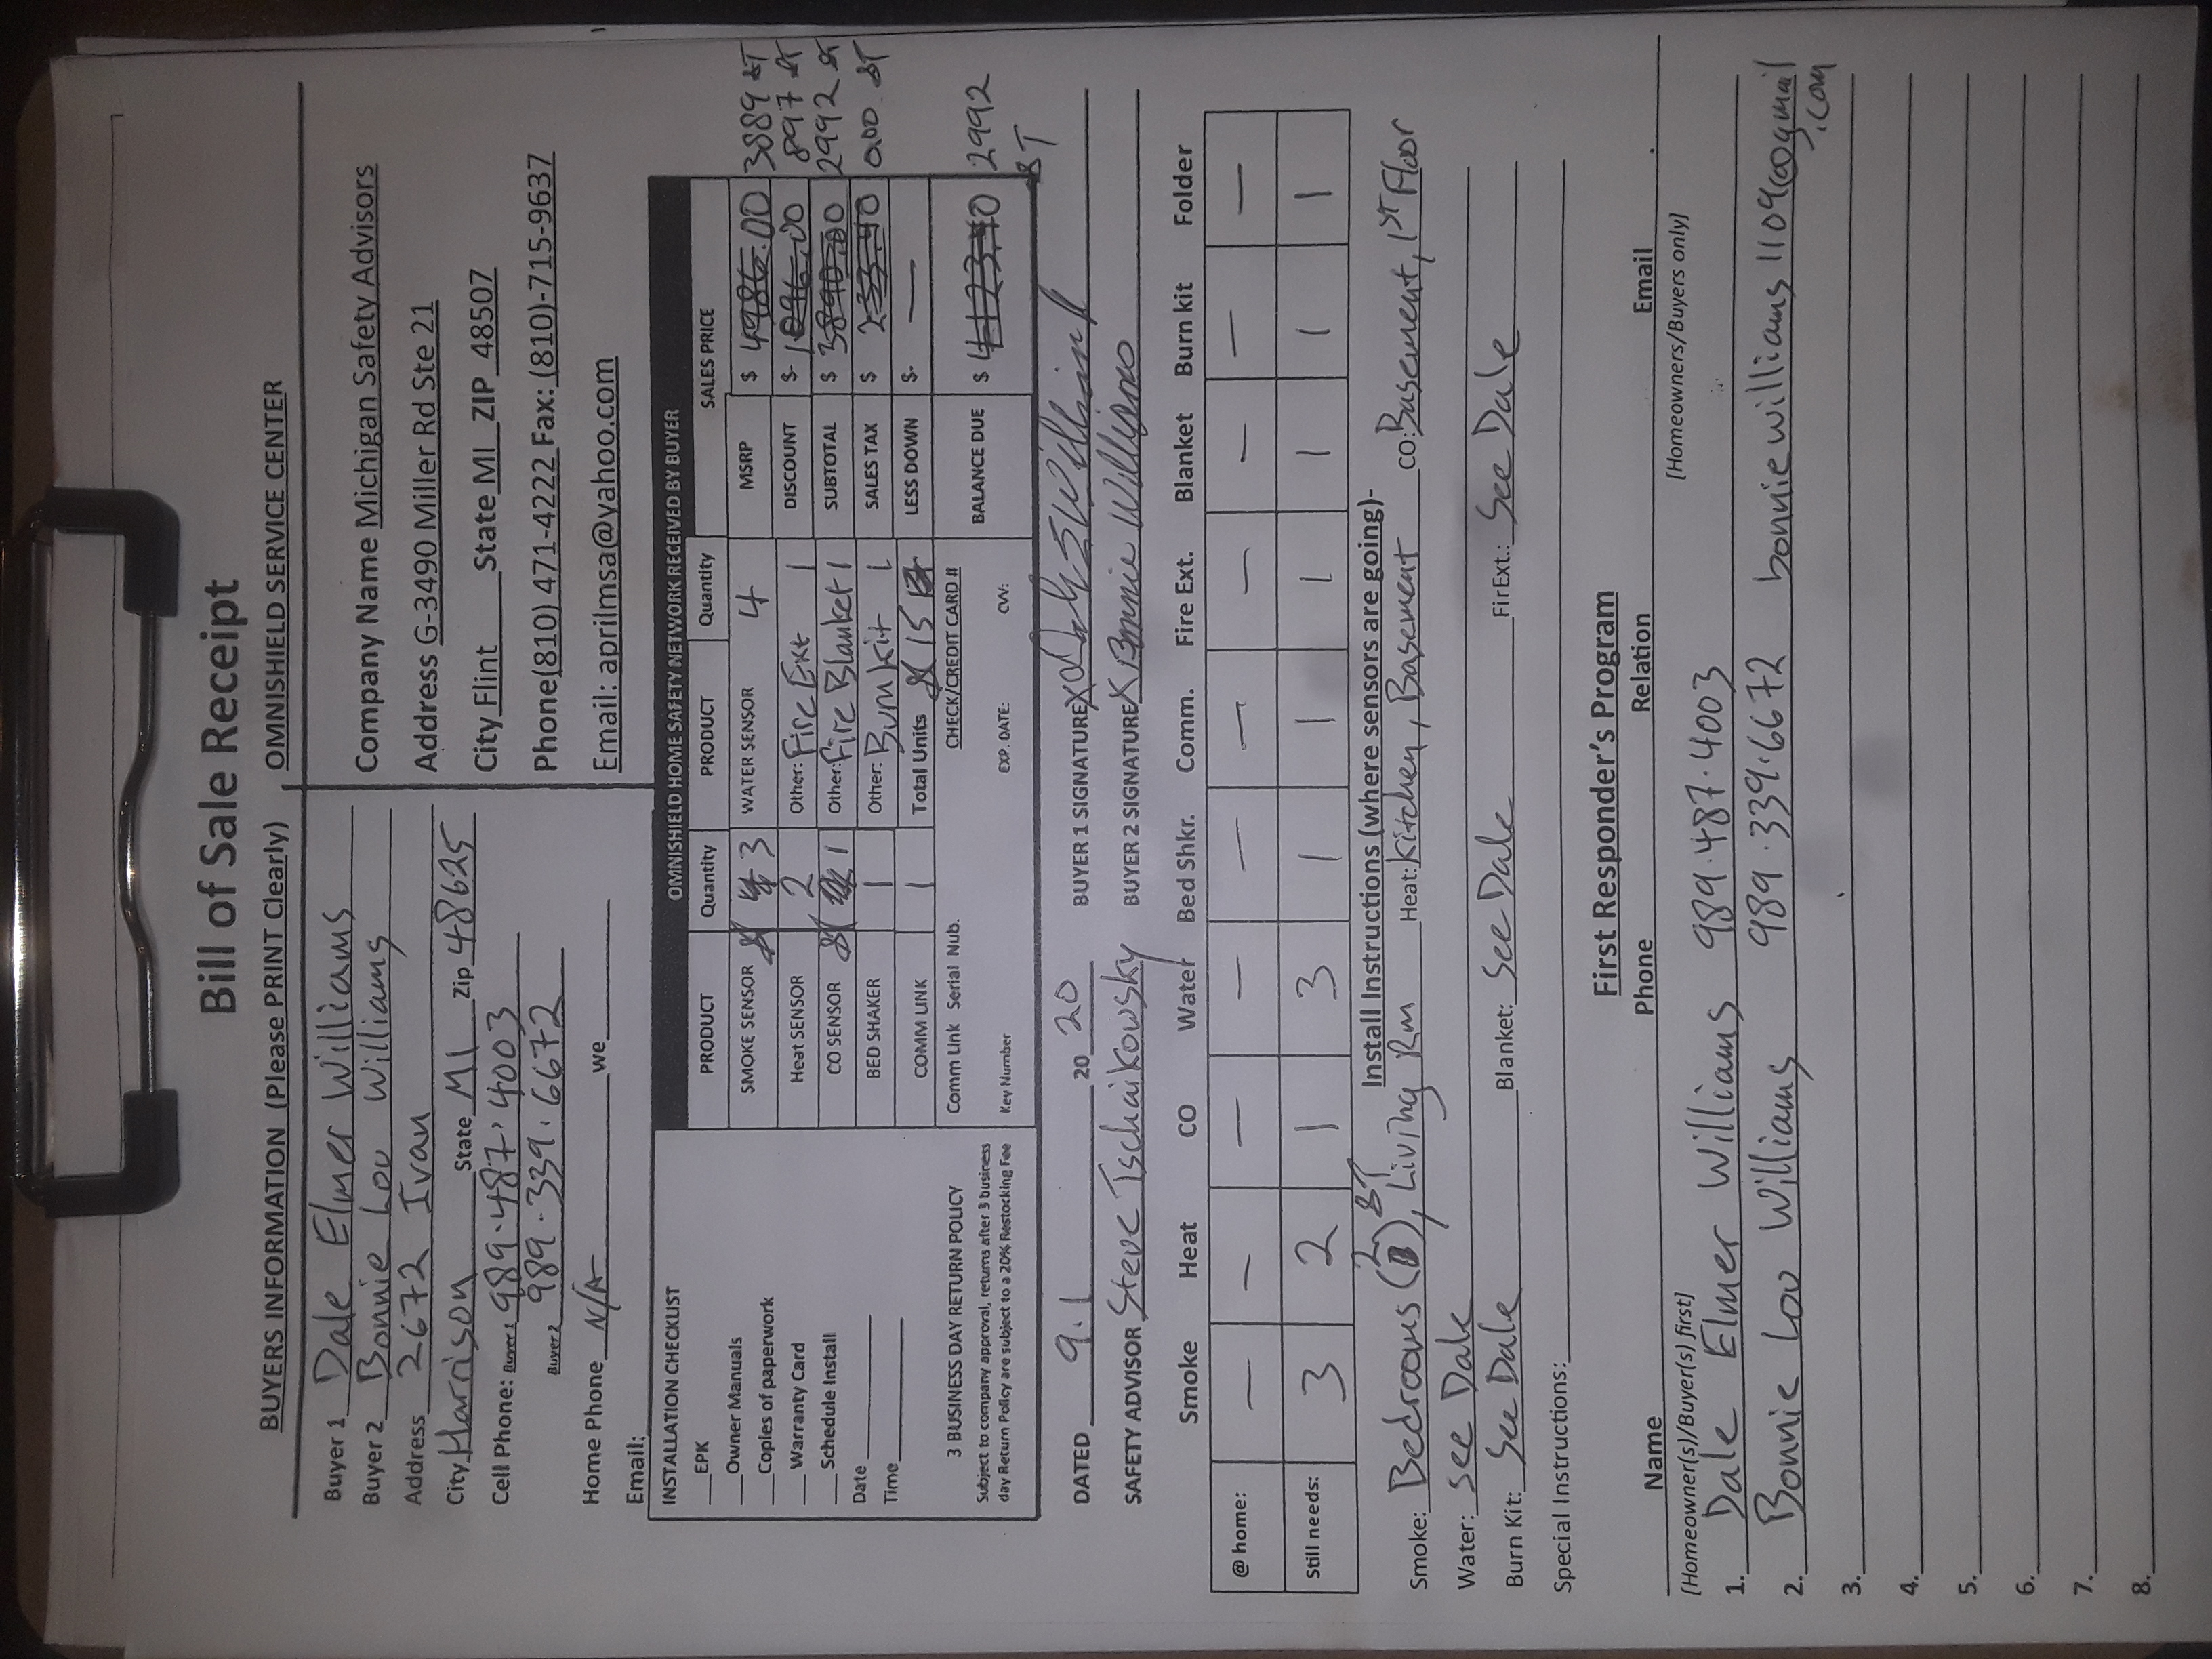 Bill of Sale Receipt
BUYERS INFORMATION (Please PRINT Clearly)
Buyer 1 Dale Elmer Williams
Buyer 2 Bonnie Lou Williams
Address 2672 Ivan
City Harrison State MI Zip 48625
Cell Phone: Buyer 1 989.487.4003
Buyer 2 989.339.6672
Home Phone N/A we
Email:
OMNISHIELD SERVICE CENTER
Company Name Michigan Safety Advisors
Address G-3490 Miller Rd Ste 21
City Flint State MI ZIP 48507
Phone(810) 471-4222 Fax: (810)-715-9637
Email: aprilmsa@yahoo.com
INSTALLATION CHECKLIST
EPK
Owner Manuals
Copies of paperwork
Warranty Card
Schedule Install
Date
Time
3 BUSINESS DAY RETURN POLICY
Subject to company approval, returns after 3 business
day Return Policy are subject to a 20% Restocking Fee
OMNISHIELD HOME SAFETY NETWORK RECEIVED BY BUYER
PRODUCT Quantity PRODUCT Quantity SALES PRICE
SMOKE SENSOR 3 WATER SENSOR 4 MSRP $ 4986.00 3889 ST
Heat SENSOR 2 Other: Fire Ext 1 DISCOUNT $- 1096.00 897 ST
CO SENSOR 1 Other: Fire Blanket 1 SUBTOTAL $ 3890.00 2992 ST
BED SHAKER 1 Other: Burn Kit 1 SALES TAX $ 233.40 0.00 ST
COMM LINK 1 Total Units 15 LESS DOWN $- —
Comm Link Serial Nub. CHECK/CREDIT CARD # BALANCE DUE $ 4123.40 2992
ST
Key Number EXP. DATE: CVV:
DATED 9.1 2020 BUYER 1 SIGNATURE X
SAFETY ADVISOR Steve Tschaikowsky BUYER 2 SIGNATURE X Bonnie Williams
Smoke Heat CO Water Bed Shkr. Comm. Fire Ext. Blanket Burn kit Folder
@ home: — — — — — — — — — —
Still needs: 3 2 1 3 1 1 1 1 1 1
Install Instructions (where sensors are going)-
Smoke: Bedrooms (2) ST, Living Rm Heat: Kitchen, Basement CO: Basement, 1st Floor
Water: see Dale
Burn Kit: See Dale Blanket: See Dale FirExt.: See Dale
Special Instructions:
First Responder's Program
Name Phone Relation Email
[Homeowner(s)/Buyer(s) first] [Homeowners/Buyers only]
1. Dale Elmer Williams 989.487.4003
2. Bonnie Lou Williams 989.339.6672 bonniewilliams1109@gmail
.com
3.
4.
5.
6.
7.
8.